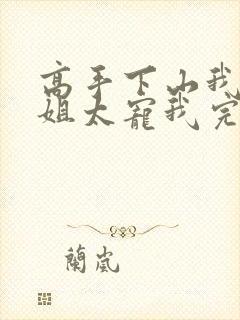 高手下山我
姐太寵我完
蘭嵐